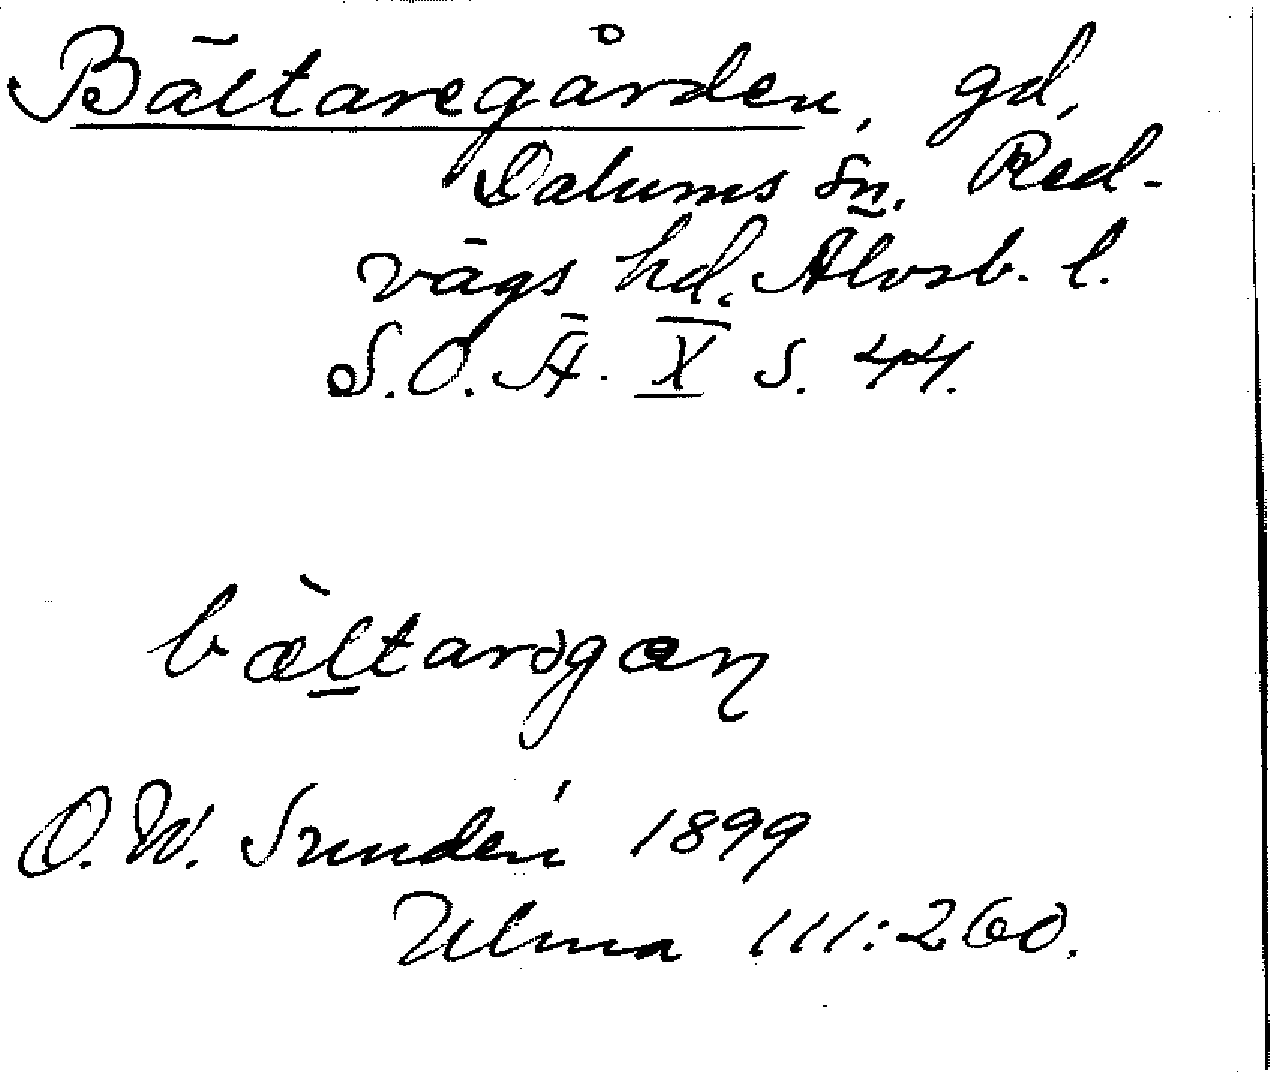 Bältaregården, gd,
Dalums sn. Red-
vägs hd. Älvsb. l.
S.O.Ä. X s. 44.
bæ̀ltarəgaɳ
O. W. Sundén 1899
Ulma 111:260.